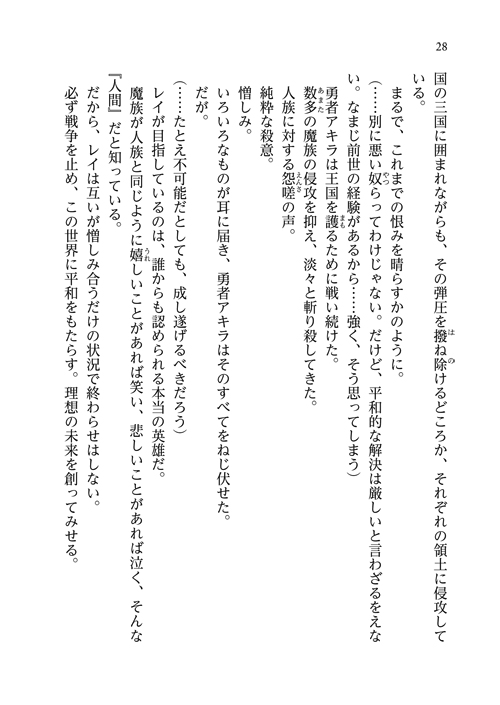 28
国の三国に囲まれながらも、その弾圧を撥ね除けるどころか、それぞれの領土に侵攻して
いる。
まるで、これまでの恨みを晴らすかのように。
（……別に悪い奴らってわけじゃない。だけど、平和的な解決は厳しいと言わざるをえな
い。なまじ前世の経験があるから……強く、そう思ってしまう）
勇者アキラは王国を護るために戦い続けた。
数多の魔族の侵攻を抑え、淡々と斬り殺してきた。
人族に対する怨嗟の声。
純粋な殺意。
憎しみ。
いろいろなものが耳に届き、勇者アキラはそのすべてをねじ伏せた。
だが。
（……たとえ不可能だとしても、成し遂げるべきだろう）
レイが目指しているのは、誰からも認められる本当の英雄だ。
魔族が人族と同じように嬉しいことがあれば笑い、悲しいことがあれば泣く、そんな
『人間』だと知っている。
だから、レイは互いが憎しみ合うだけの状況で終わらせはしない。
必ず戦争を止め、この世界に平和をもたらす。理想の未来を創ってみせる。